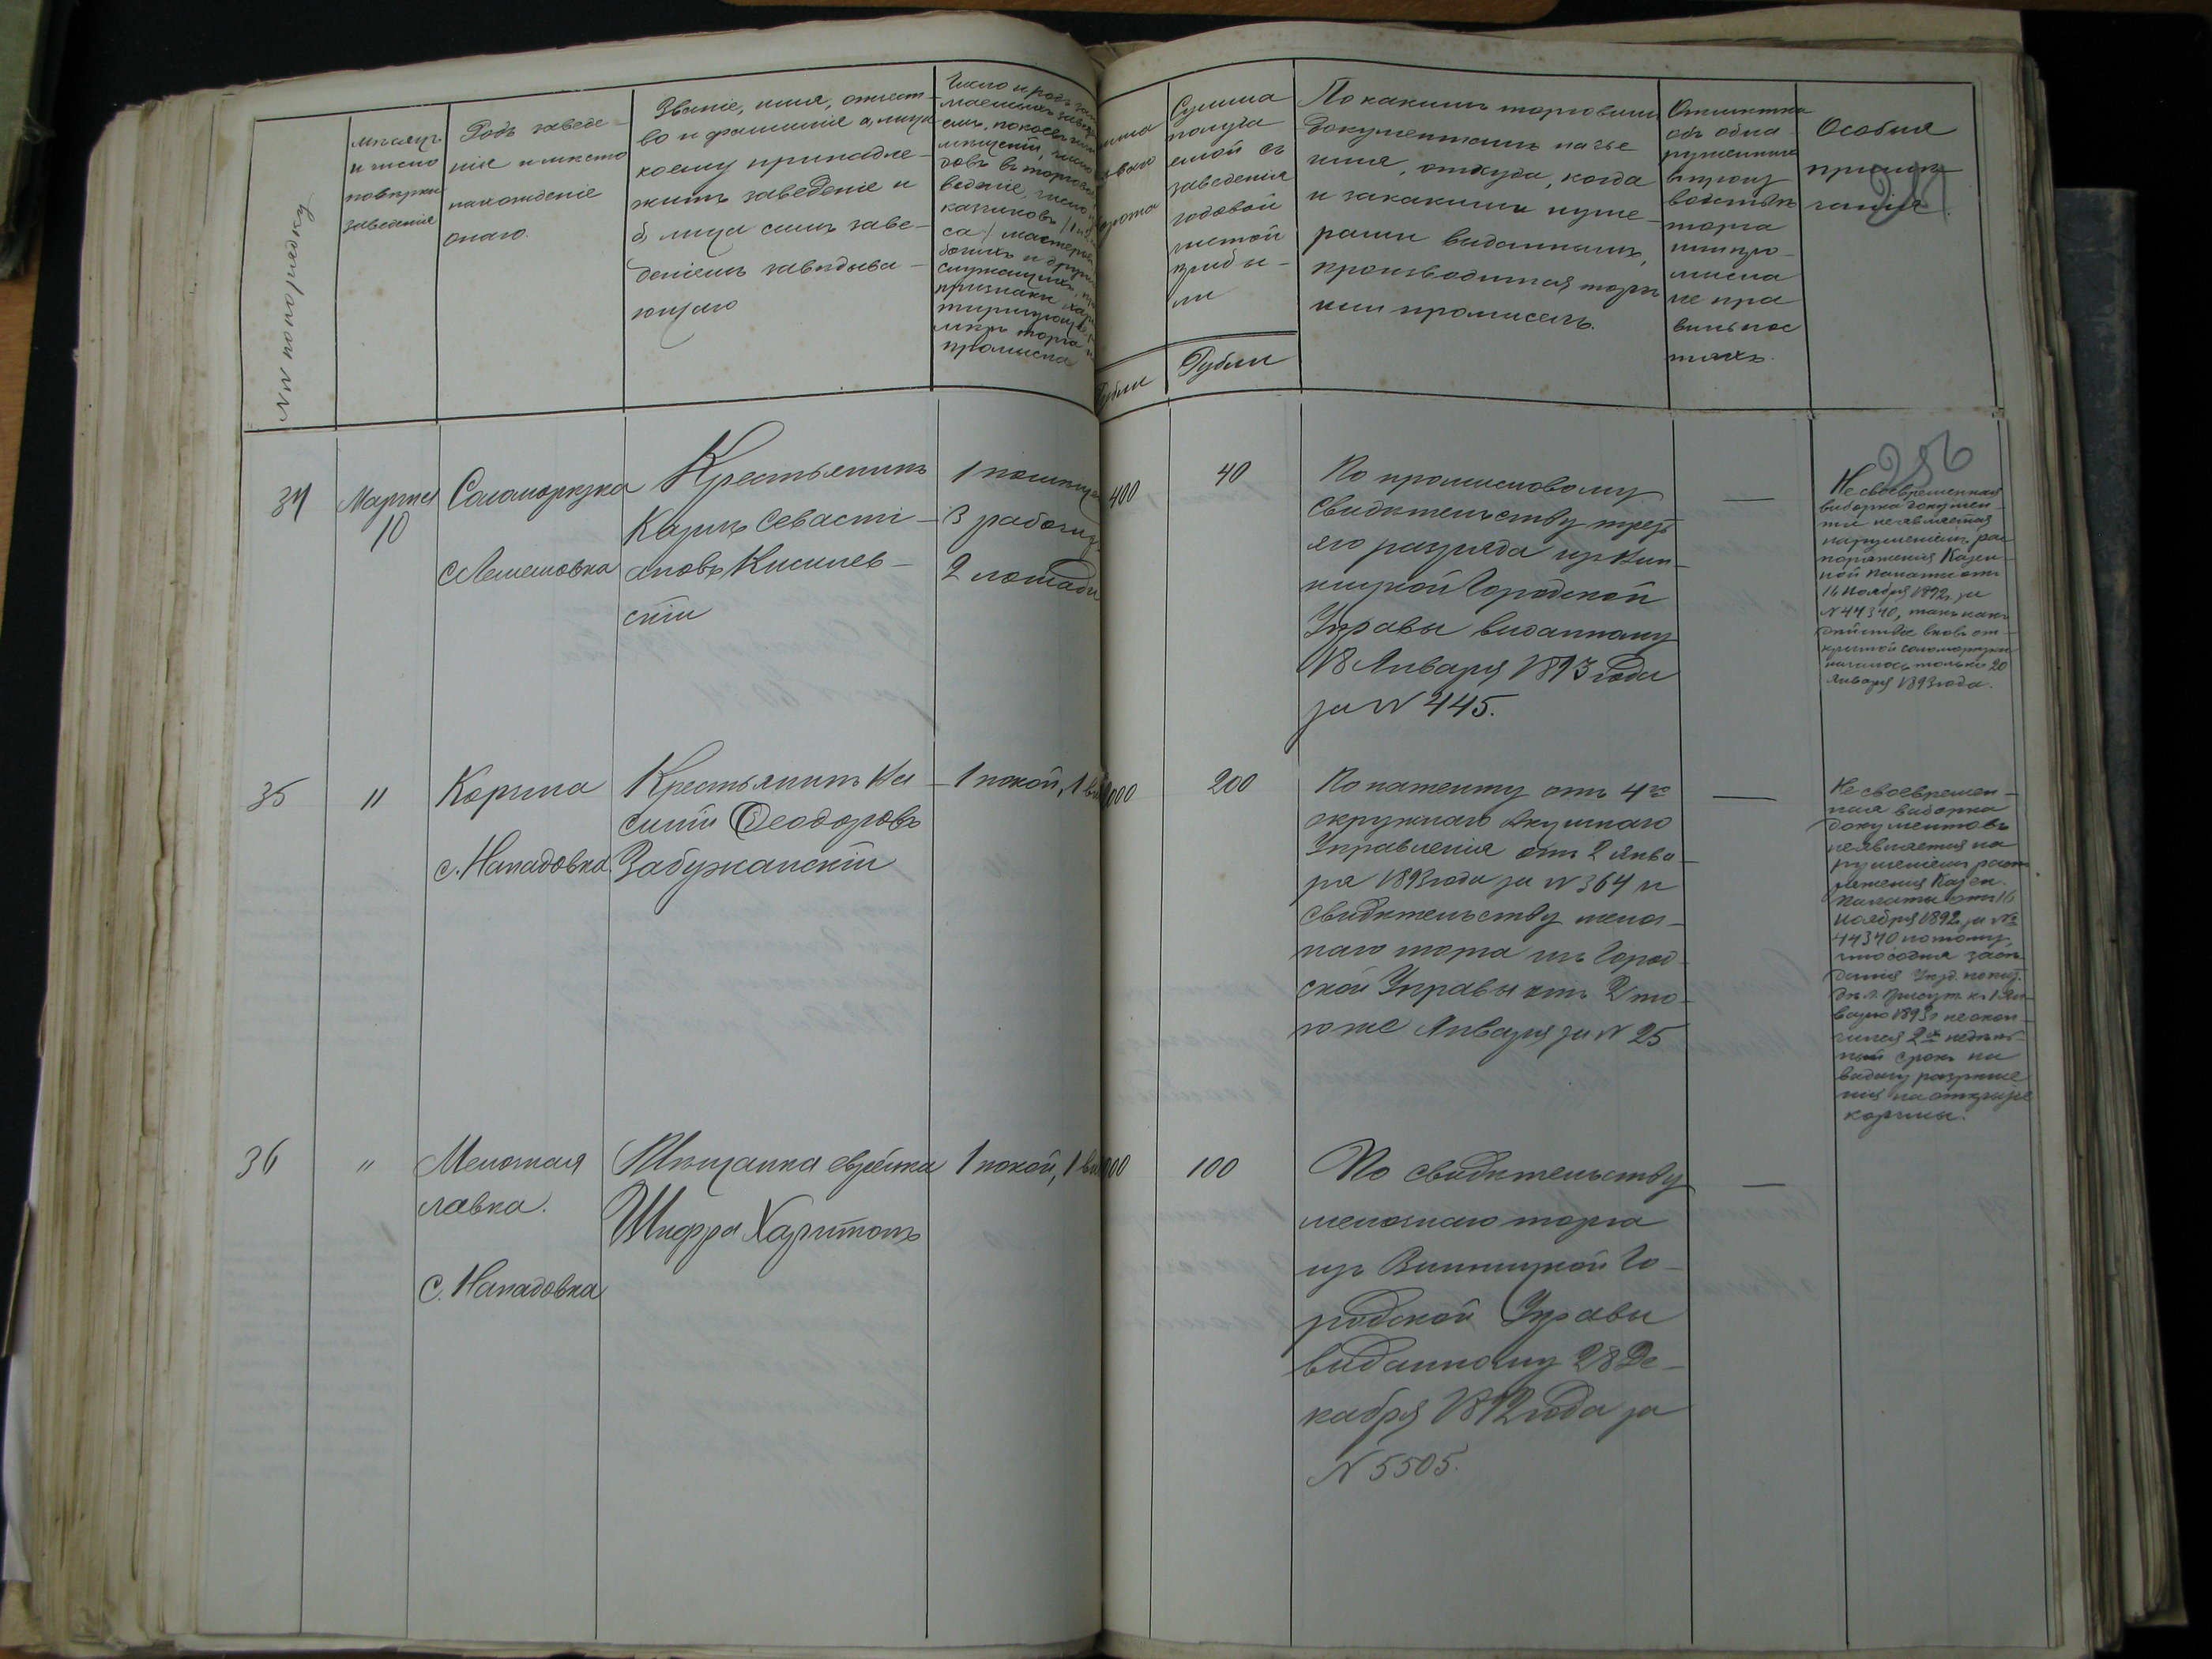 NN по порядку
мѣсяцъ
и число
повѣрки
заведенія
Родъ заведе-
нія и мѣсто
нахожденіе
онаго.
Званіе, имя, отчест-
во и фамилія а, лица
коему принадле-
житъ заведеніе и
б, лица симъ заве-
деніемъ завѣдыва-
ющаго
Число и родъ
промысла
Рубли
Сумма
получа
емой съ
заведенія
годовой
чистой
прибы-
ли
Рубли
По какимъ торговымъ
документамъ на чье
имя, откуда, когда
и за какими нуме-
рами выданнымъ,
производится торгъ
или промыселъ.
Отмѣтка
объ обна-
руженныхъ
въ произ
водствѣ
торга
или про-
мысла
не пра
вильнос
тяхъ.
Особыя
примѣ-
чанія.
256
34
Марта
10
Соломорѣзка
с. Лемешовка
Крестьянинъ
Казиміръ Севасті-
ановъ Кисилев-
скій
1 помѣще
3 рабочихъ
2 лошади
400
40
По промысловому
свидѣтельству треть
яго разряда изъ Вин-
ницкой Городской
Управы выданному
18 Января 1893 года
за N 445.
—
Не своевременная
выборка докумен-
та не является
нарушеніемъ рас
поряженія Казен-
ной Палаты отъ
16 Ноября 1892 за
N 44340, такъ какъ
дѣйствіе вновь от-
крытой соломорѣзки
началось только 20
Января 1893 года.
35
"
Корчма
с. Нападовка
Крестьянинъ
Ѳеодоровъ
Забужанскій
1 покой, 1
000
200
По патенту отъ 4го
окружнаго Акцизнаго
Управленія отъ 2 Янва-
ря 1893 года за N 364 и
свидѣтельству мелоч-
наго торга изъ Город-
ской Управы отъ 2 то-
го же Января за N 25
—
Не своевремен-
ная выборка
документовъ
не является на
рушеніемъ распо
ряженія Казен.
Палаты отъ 16
Ноября 1892 за №
44340 потому,
что со дня засѣ-
данія Уѣзд. по пит.
дѣл. Присут. къ 1 Ян-
варю 1893 г. не окон-
чился 2хъ недѣль-
ный срокъ на
выдачу разрѣше
нія на открытіе
корчмы.
36
"
Мелочная
лавка.
с. Нападовка
Мѣщанка еврейка
Шифра Харитонъ
1 покой, 1
00
100
По свидѣтельству
мелочнаго торга
изъ Винницкой Го-
родской Управы
выданному 28 Де-
кабря 1892 года за
N 5505.
—